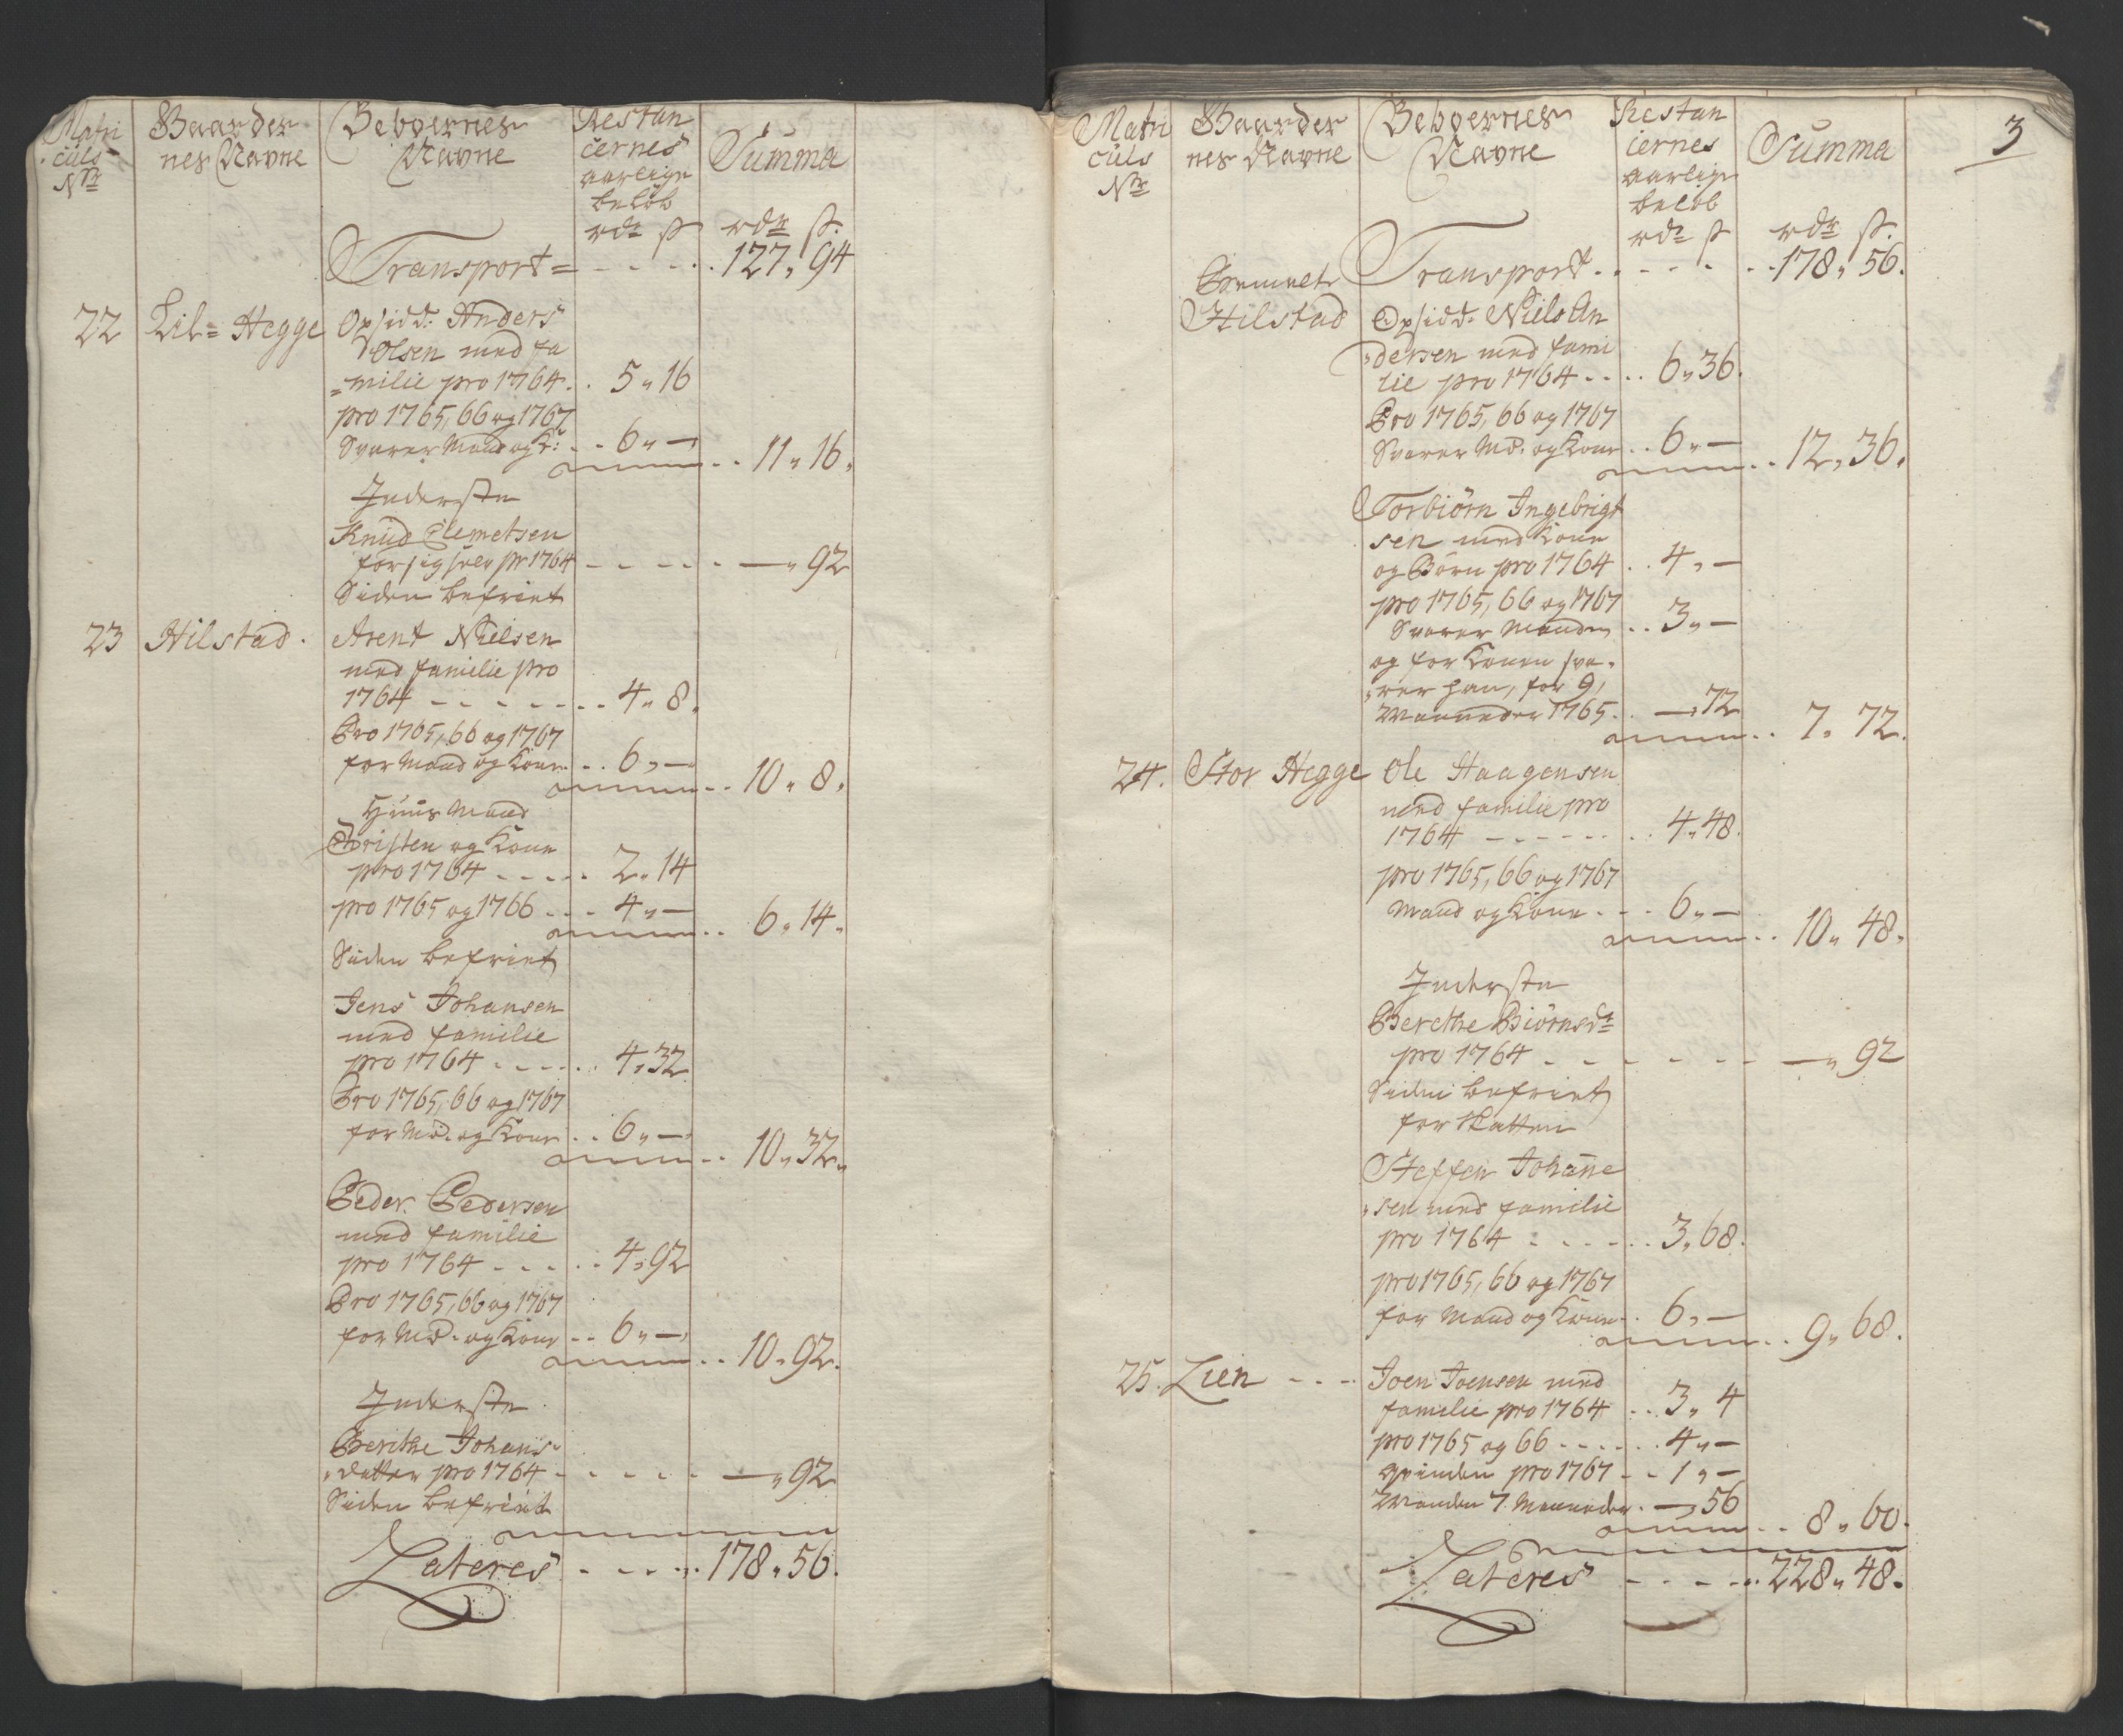 Matri
culs
Nr
Gaarder
nes Navne
Beboernes
Navne
Restan
cernes
aarlige
belöb
rdr ß
Summa
rdr ß.
Transport = - - - - 127 " 94
22 Lil= Hegge Opsidd: Anders
Olsen med fa
=milie pro 1764 . . 5 " 16
pro 1765, 66 og 1767
Svarer Mand og K: . . 6 " — . . 11 " 16.
Inderste
Knud Clemetsen
for sig selv pr 1764 - - - - - — " 92
Siden befriet
23 Hilstad. Arent Nielsen
med familie pro
1764 - - - - - - - 4 " 8.
Pro 1765, 66 og 1767
for Mand og Kone . . 6 " — . . 10 " 8.
Huus Mand
Christen og Kone
pro 1764 - - - - - 2 " 14
pro 1765 og 1766 - - - 4 " — . . 6 " 14.
Siden befriet
Jens Johansen
med familie
pro 1764 - - - - - 4 " 32
Pro 1765, 66 og 1767
for Md. og Kone . . 6 " — . . 10 " 32.
Peder Pedersen
med familie
pro 1764 - - - - - 4 " 92
Pro 1765, 66 og 1767
for Md. og Kone . . 6 " — . . 10 " 92.
Inderste
Berithe Johans
"datter pro 1764 - - - - - — " 92
Siden befriet
Lateres - - - - 178 " 56.
3
Matri
culs
Nr
Gaarder
nes Navne
Beboernes
Navne
Restan
cernes
aarlige
belöb
rdr ß
Summa
rdr ß.
Transport . - - - - 178 " 56.
Hilstad Opsidd: Niels An
"dersen med fami
lie pro 1764 - - . . 6 " 36.
Pro 1765, 66 og 1767
Svarer Md. og Kone . . 6 " — . . 12 " 36.
Torbiörn Ingebrigt
sen med Kone
og Börn pro 1764 . . 4 " —
pro 1765, 66 og 1767
Svarer Manden . . 3 " —
og for Konen sva,
"rer han, for 9,
Maaneder 1765 . . — " 72 . . 7 " 72.
24. Stor Hegge Ole Haagensen
med familie pro
1764 - - - - - - . . 4 " 48.
pro 1765, 66 og 1767
Mand og Kone . - - 6 " — . . 10 " 48.
Inderste
Berethe Biörnsdr
pro 1764 - - - - - - — " 92
Siden befriet
for Skatten
Steffen Johanne
"sen med familie
pro 1764 - - - - - - 3 " 68.
pro 1765, 66 og 1767
for Mand og Kone . . 6 " — . . 9 " 68.
25. Lien - - - Joen Joensen med
familie pro 1764 . . . 3 " 4
pro 1765 og 66 - - - - . . 4 " —
qvinden pro 1767 - - 1 " —
Manden 7 Maaneder . — " 56 . . 8 " 60.
Lateres - - - - 228 " 48.